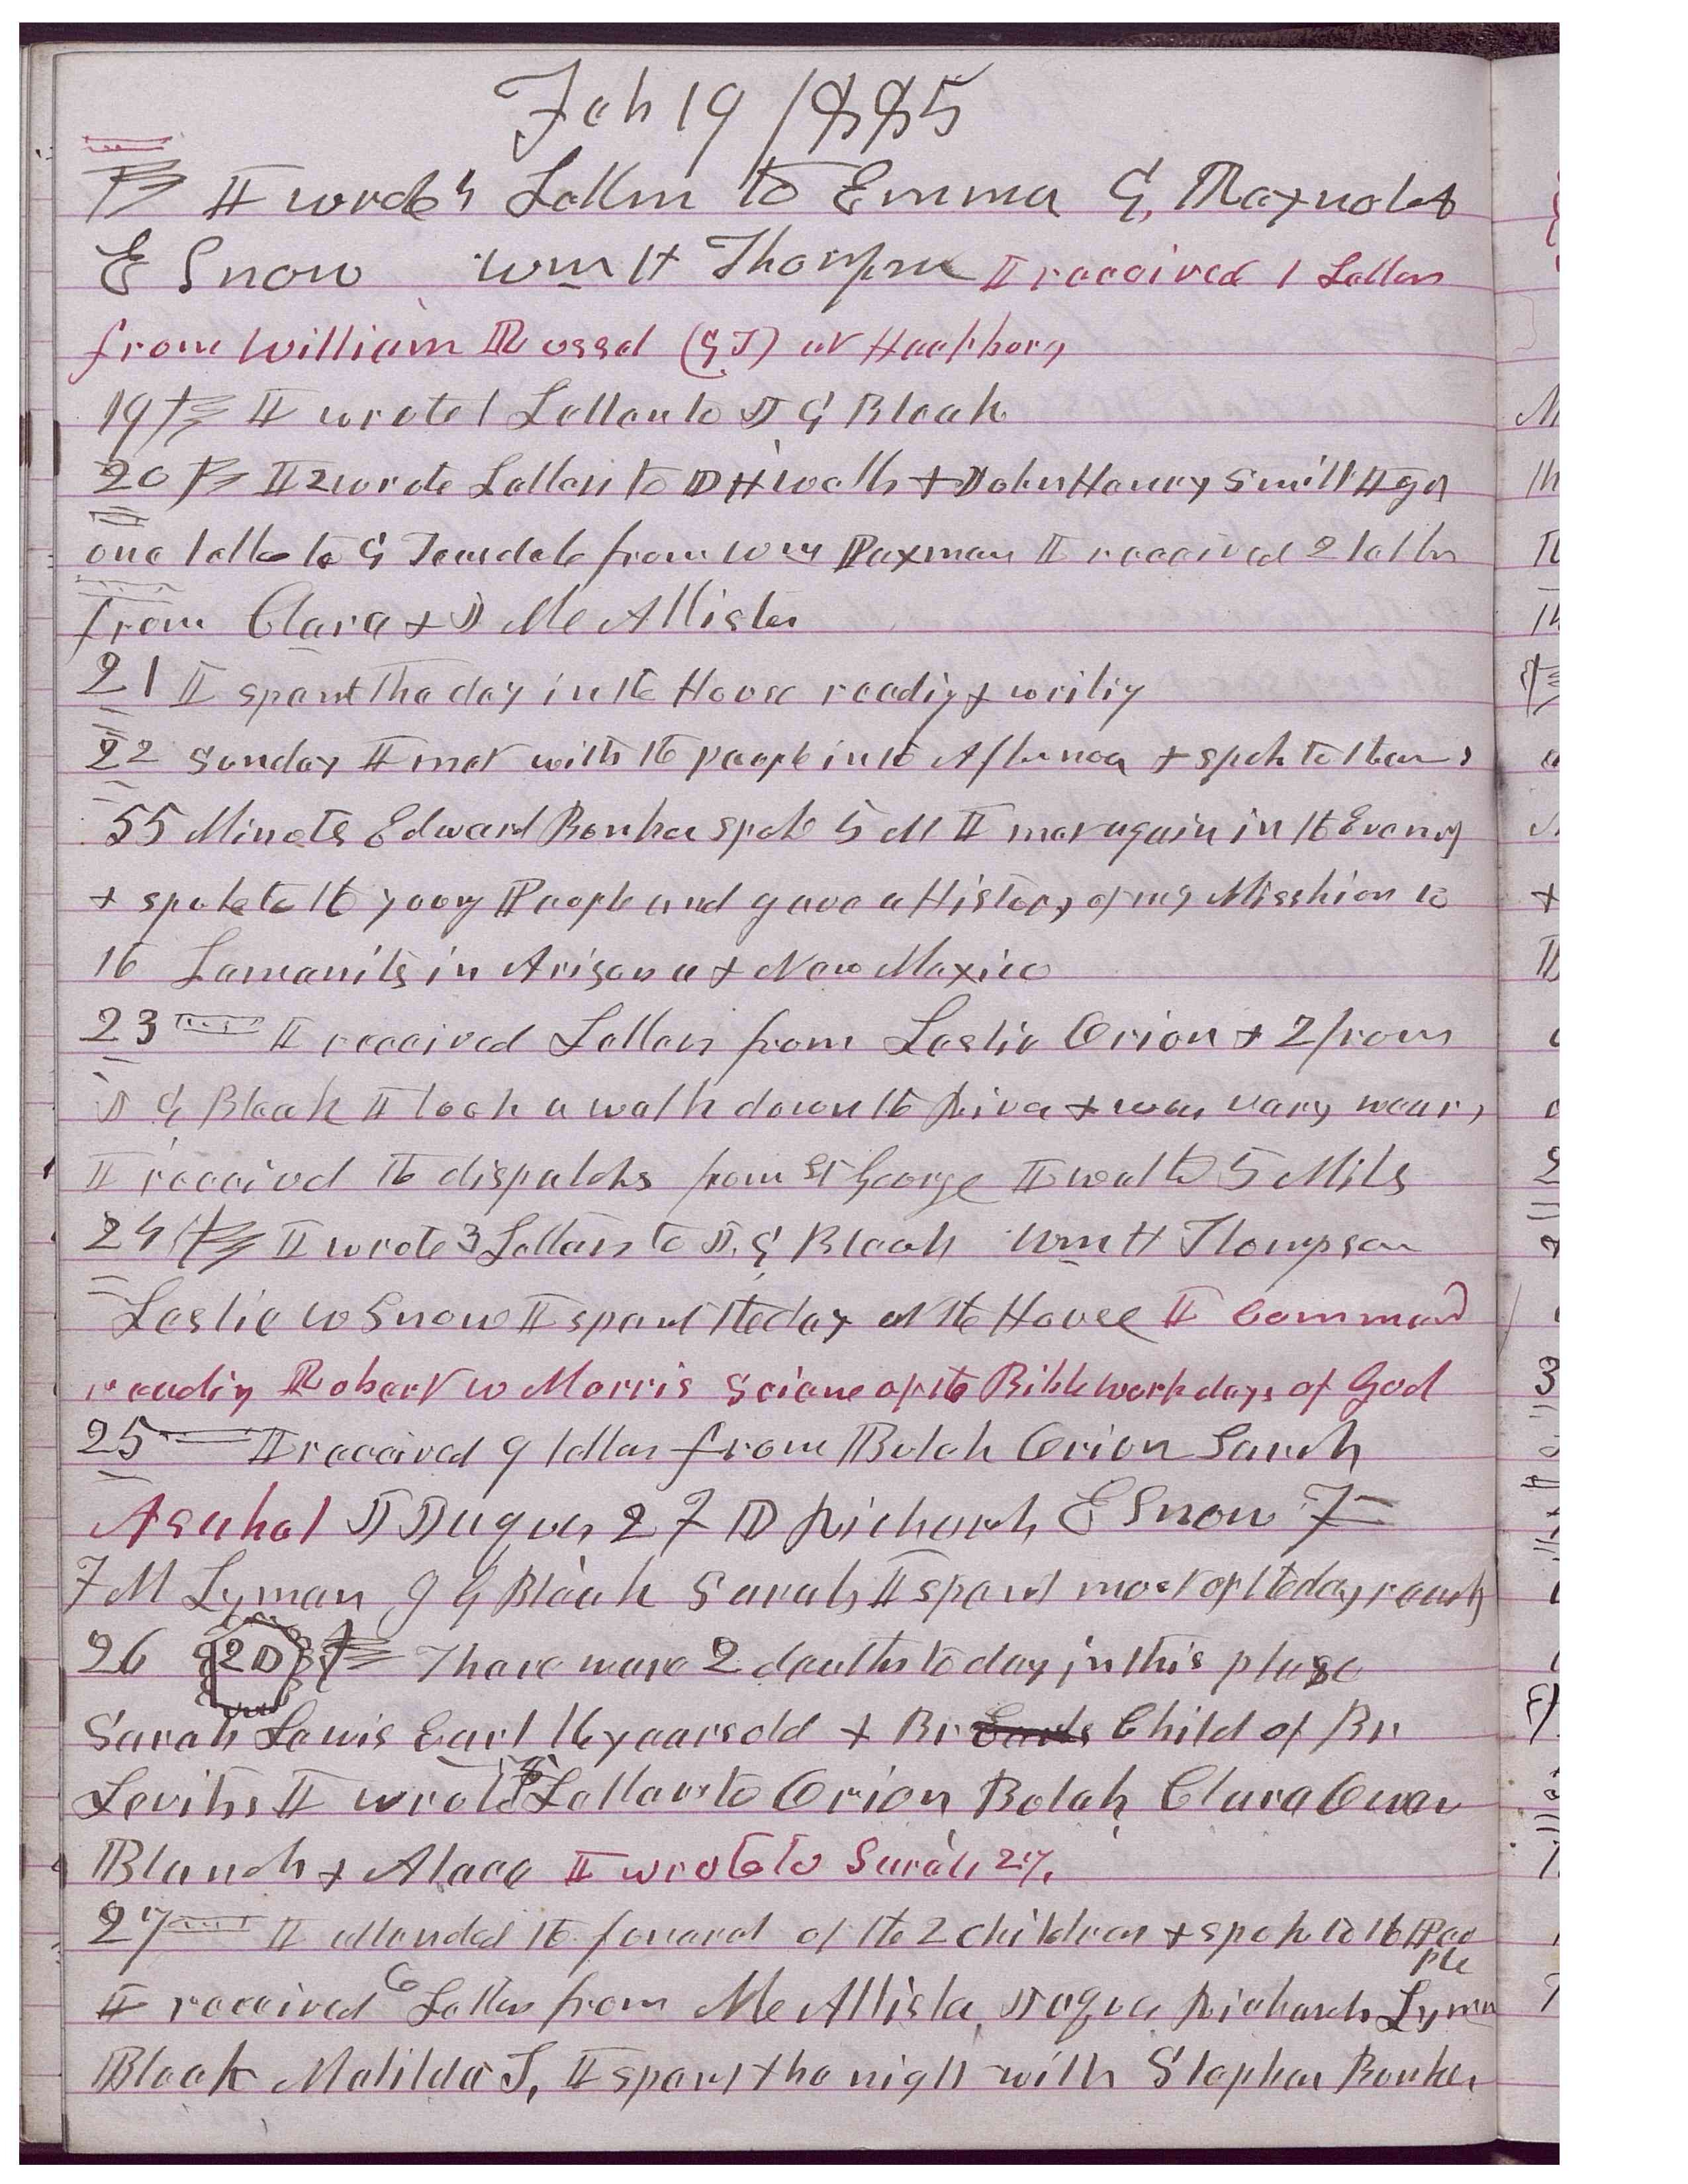 Feb 19 1885
I wrote 4 Letters to Emma G, Raynolds
E Snow Wm H Thompson I received 1 Letter
from William Russel (GT) at
19th I wrote 1 Letter to J G Bleak
20th I 2 wrote Letters to D H Wells & John Henry Smith I got
one letter to G Teasdale from Wm Paxman I received 2 letters
from Clara & J McAllister
21 I spent the day in the House reading & writing
22 Sunday I met with the people in the Afternoon & spoke to them
55 Minuts Edward Bunker spoke 5 M I met again in the Evening
& spoke to the young People and gave a History of my Misshion to
the Lamanits in Arisona & New Mexico
23 I received Letters from Leslie Orion & 2 from
J G Bleak I took a walk down the River & was very weary
I received the dispatches from St George I walked 5 Mils
24th I wrote 3 Letters to J. G Bleak Wm H Thompson
Leslie W Snow I spent the day at the House I Commend
reading Robert W Morris Science of the Bible work days of God
25 I received 9 letters from Bulah Orion Sarah
Asahel J Jaques 2 F D Richards E Snow
F M Lyman J G Bleak Sarah I spent most of the day reading
26 2D th There were 2 deaths today in this place
Sarah Lewis Earl 16 years old & Br Earls Child of Br
Levitts I wrote 5 Letters to Orion Bulah Clara Owen
Blanch & Alace I wrote to Sarah 27.
27 I attended the funeral of the 2 children & spoke to the Peo
ple
I received 6 Letters from McAllister, Jaques Richards Lyman
Bleak Matilda J, I spent the night with Stephen Bunker